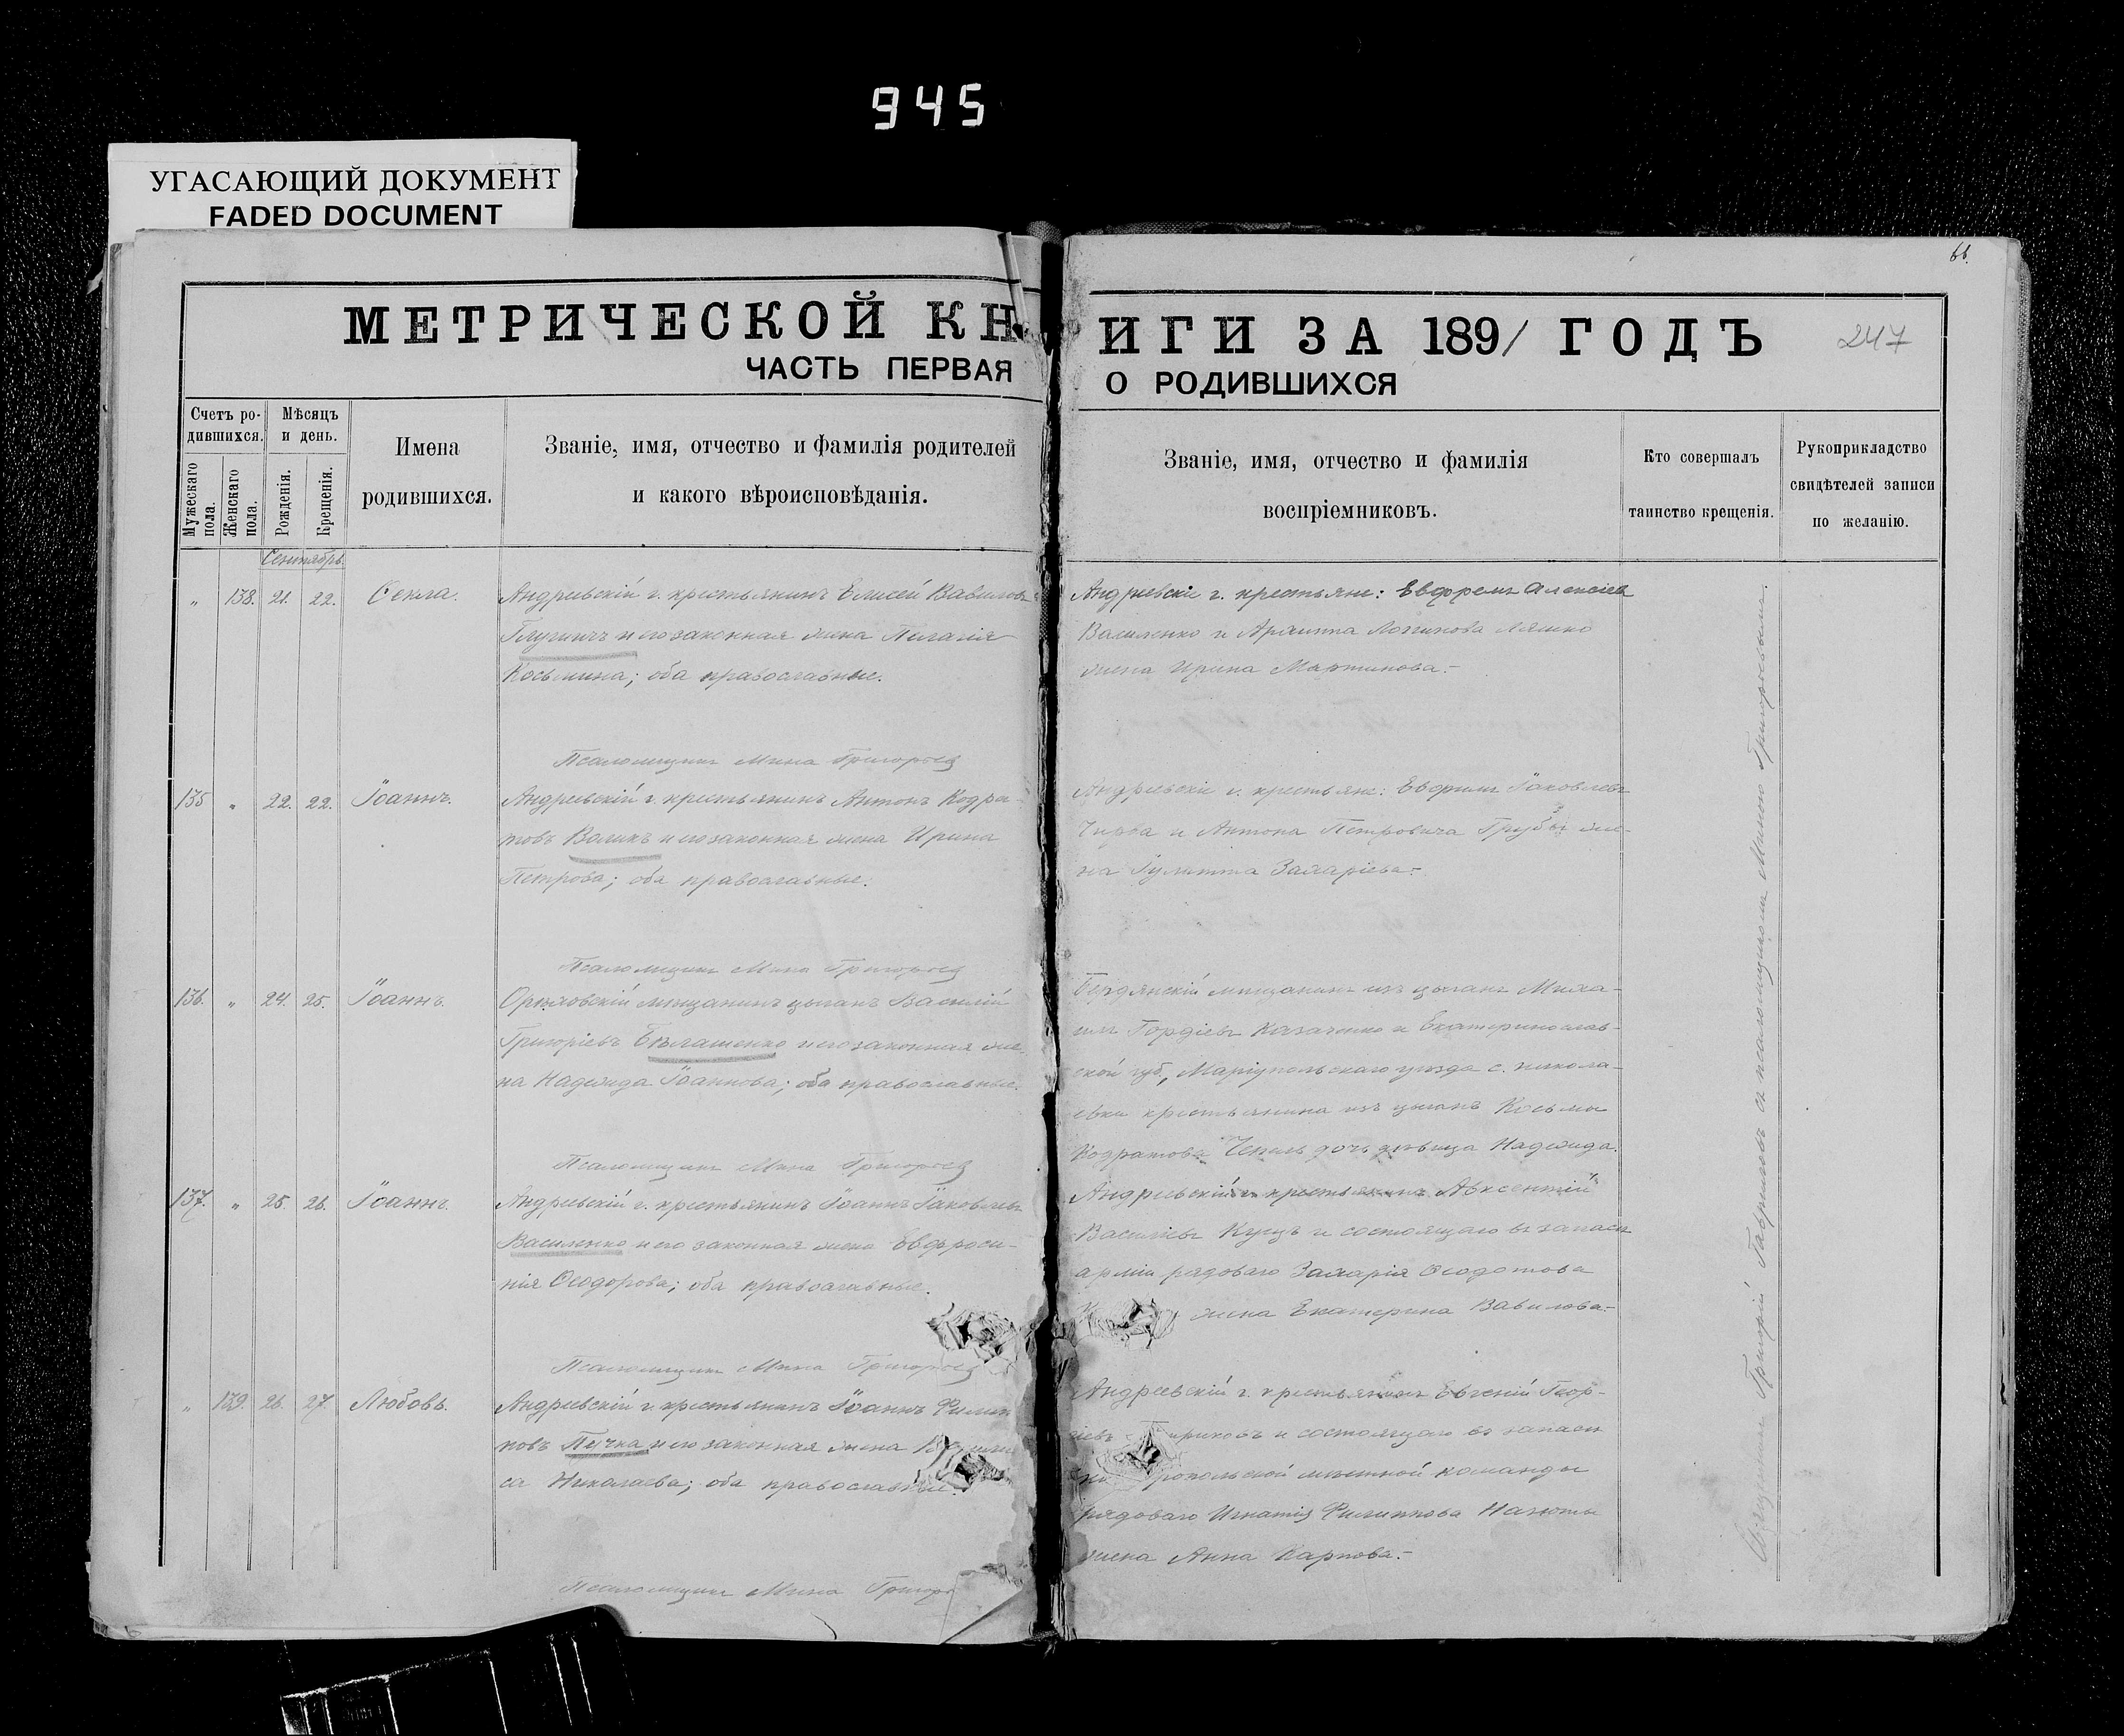 945
УГАСАЮЩИЙ ДОКУМЕНТ
FADED DOCUMENT
66.
МЕТРИЧЕСКОЙ КН
ЧАСТЬ ПЕРВАЯ
Счетъ ро-
дившихся.
Мѣсяцъ
и день.
Мужескаго
пола.
Женскаго
пола.
Рожденія.
Крещенія.
Имена
родившихся.
Званіе, имя, отчество и фамилія родителей
и какого вѣроисповѣданія.
Сентябрь
„ 138. 21. 22. Ѳекла. Андреевскій г. крестьянинъ Елисей Вавиловъ
и его законная жена Пелагія
Косьмина; оба православные.
Псаломщикъ Мина Григорьев
135 „ 22. 22. Іоаннъ. Андреевскій г. крестьянинъ Антонъ Кодра-
товъ Воликъ и его законная жена Ирина
Петрова; оба православные.
Псаломщикъ Мина Григорьев
136. „ 24. 25. Іоаннъ. Орѣховскій мѣщанинъ цыганъ Василій
Григоріевъ Бѣлашенко и его законная же-
на Надежда Іоаннова; оба православные.
Псаломщикъ Мина Григорьев
137. „ 25. 26. Іоаннъ. Андреевскій г. крестьянинъ Іоаннъ Іаковлевъ
Василенко и его законная жена Евфроси-
нія Ѳеодорова; оба православные.
Псаломщикъ Мина Григорьев
„ 139. 26. 27. Любовь. Андреевскій г. крестьянинъ Іоаннъ Филип
повъ Пучка и его законная жена
са Николаева; оба православные.
Псаломщикъ Мина Григор
ИГИ ЗА 1891 ГОДЪ
247
О РОДИВШИХСЯ
Званіе, имя, отчество и фамилія
воспріемниковъ.
Кто совершалъ
таинство крещенія.
Рукоприкладство
свидѣтелей записи
по желанію.
Андреевскіе г. крестьяне: Евфремъ Алексіевъ
Василенко и Логинова Ляшко
жена Ирина Мартинова.-
Андреевскіе г. крестьяне: Евфимъ Іаковлевъ
Чирва и Антона Петровича Грубы же-
на Іулитта Захаріева.-
Бердянскій мѣщанинъ изъ цыганъ Миха-
илъ Гордіевъ Казаченко и Екатеринослав-
ской губ., Маріупольскаго уѣзда с. Никола-
евки крестьянина изъ цыганъ Косьмы
Кодратова Чепиль дочь дѣвица Надежда.
Андреевскій г. крестьянинъ Авксентій
Василіевъ Куцъ и состоящаго въ запасѣ
арміи рядоваго Захарія Ѳеодотова
жена Екатерина Вавилова.-
Андреевскій г. крестьянинъ Евгеній Геор-
гіевъ и состоящаго въ запасѣ
ропольской мѣстной команды
рядоваго Игнатія Филиппова Назюты
жена Анна Карпова.-
Священникъ Григорій Гавриловъ съ псаломщикомъ Миною Григорьевымъ.